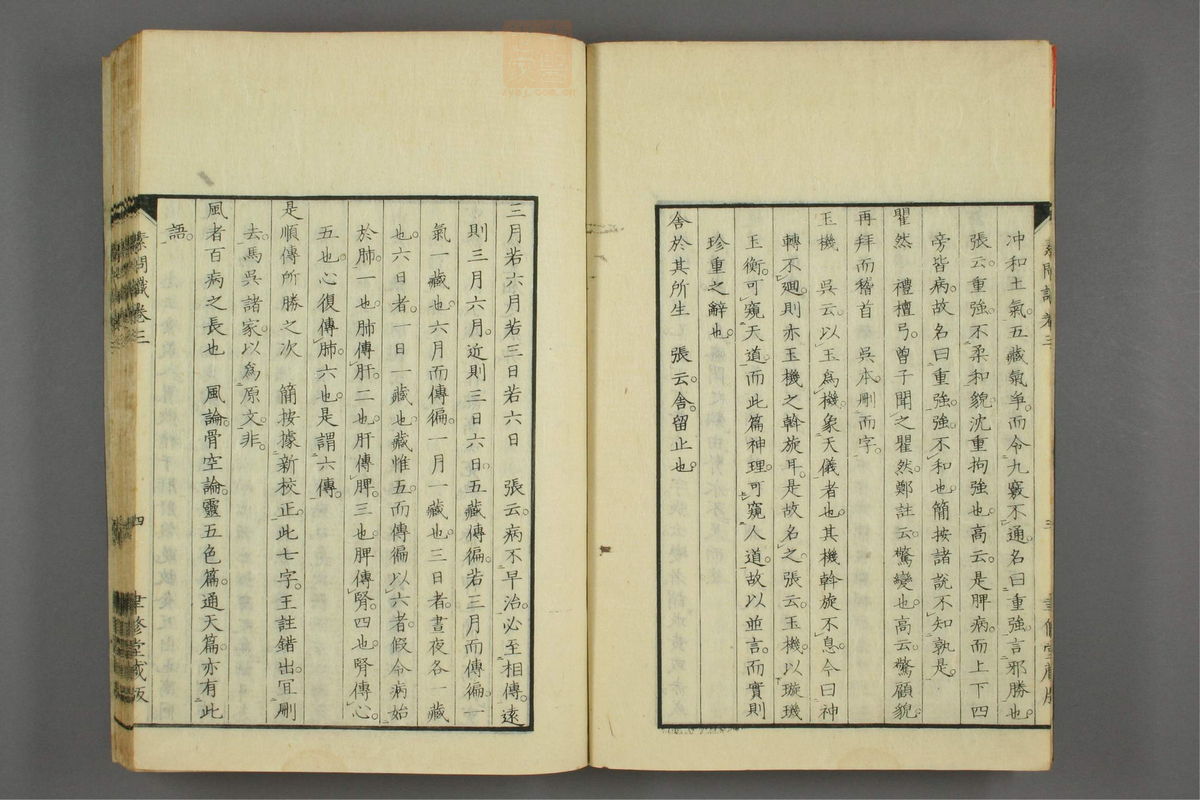 冲和土氣。五藏氣爭。而令九竅不通。名曰重強。言邪勝也。
張云。重強。不柔和貌。沈重拘強也。高云。是脾病而上下四
旁皆病。故名曰重強。強。不和也。簡按諸說不知孰是。
瞿然　禮檀弓。曾子聞之瞿然。鄭註云。驚變也。高云。驚顧貌。
再拜而稽首　吳本。刪而字。
玉機　吳云。以玉爲機。象天儀者也。其機斡旋不息。今曰神
轉不廻。則亦玉機之斡旋耳。是故名之。張云。玉機。以璇璣
玉衡。可窺天道。而此篇神理。可窺人道。故以並言。而實則
珍重之辭也。
舍於其所生　張云。舍。留止也。
三月若六月若三日若六日　張云。病不早治。必至相傳。遠
則三月六月。近則三日六日。五藏傳徧。若三月而傳徧。一
氣一藏也。六月而傳徧。一月一藏也。三日者。晝夜各一藏
也。六日者。一日一藏也。藏惟五。而傳徧以六者。假令病始
於肺。一也。肺傳肝。二也。肝傳脾。三也。脾傳腎。四也。腎傳心。
五也。心復傳肺。六也。是謂六傳。
是順傳所勝之次　簡按據新校正。此七字。王註錯出。冝刪
去。馬吳諸家。以爲原文。非。
風者百病之長也　風論。骨空論。靈五色篇。通天篇。亦有此
語。
素問識卷三
四
聿修堂藏版